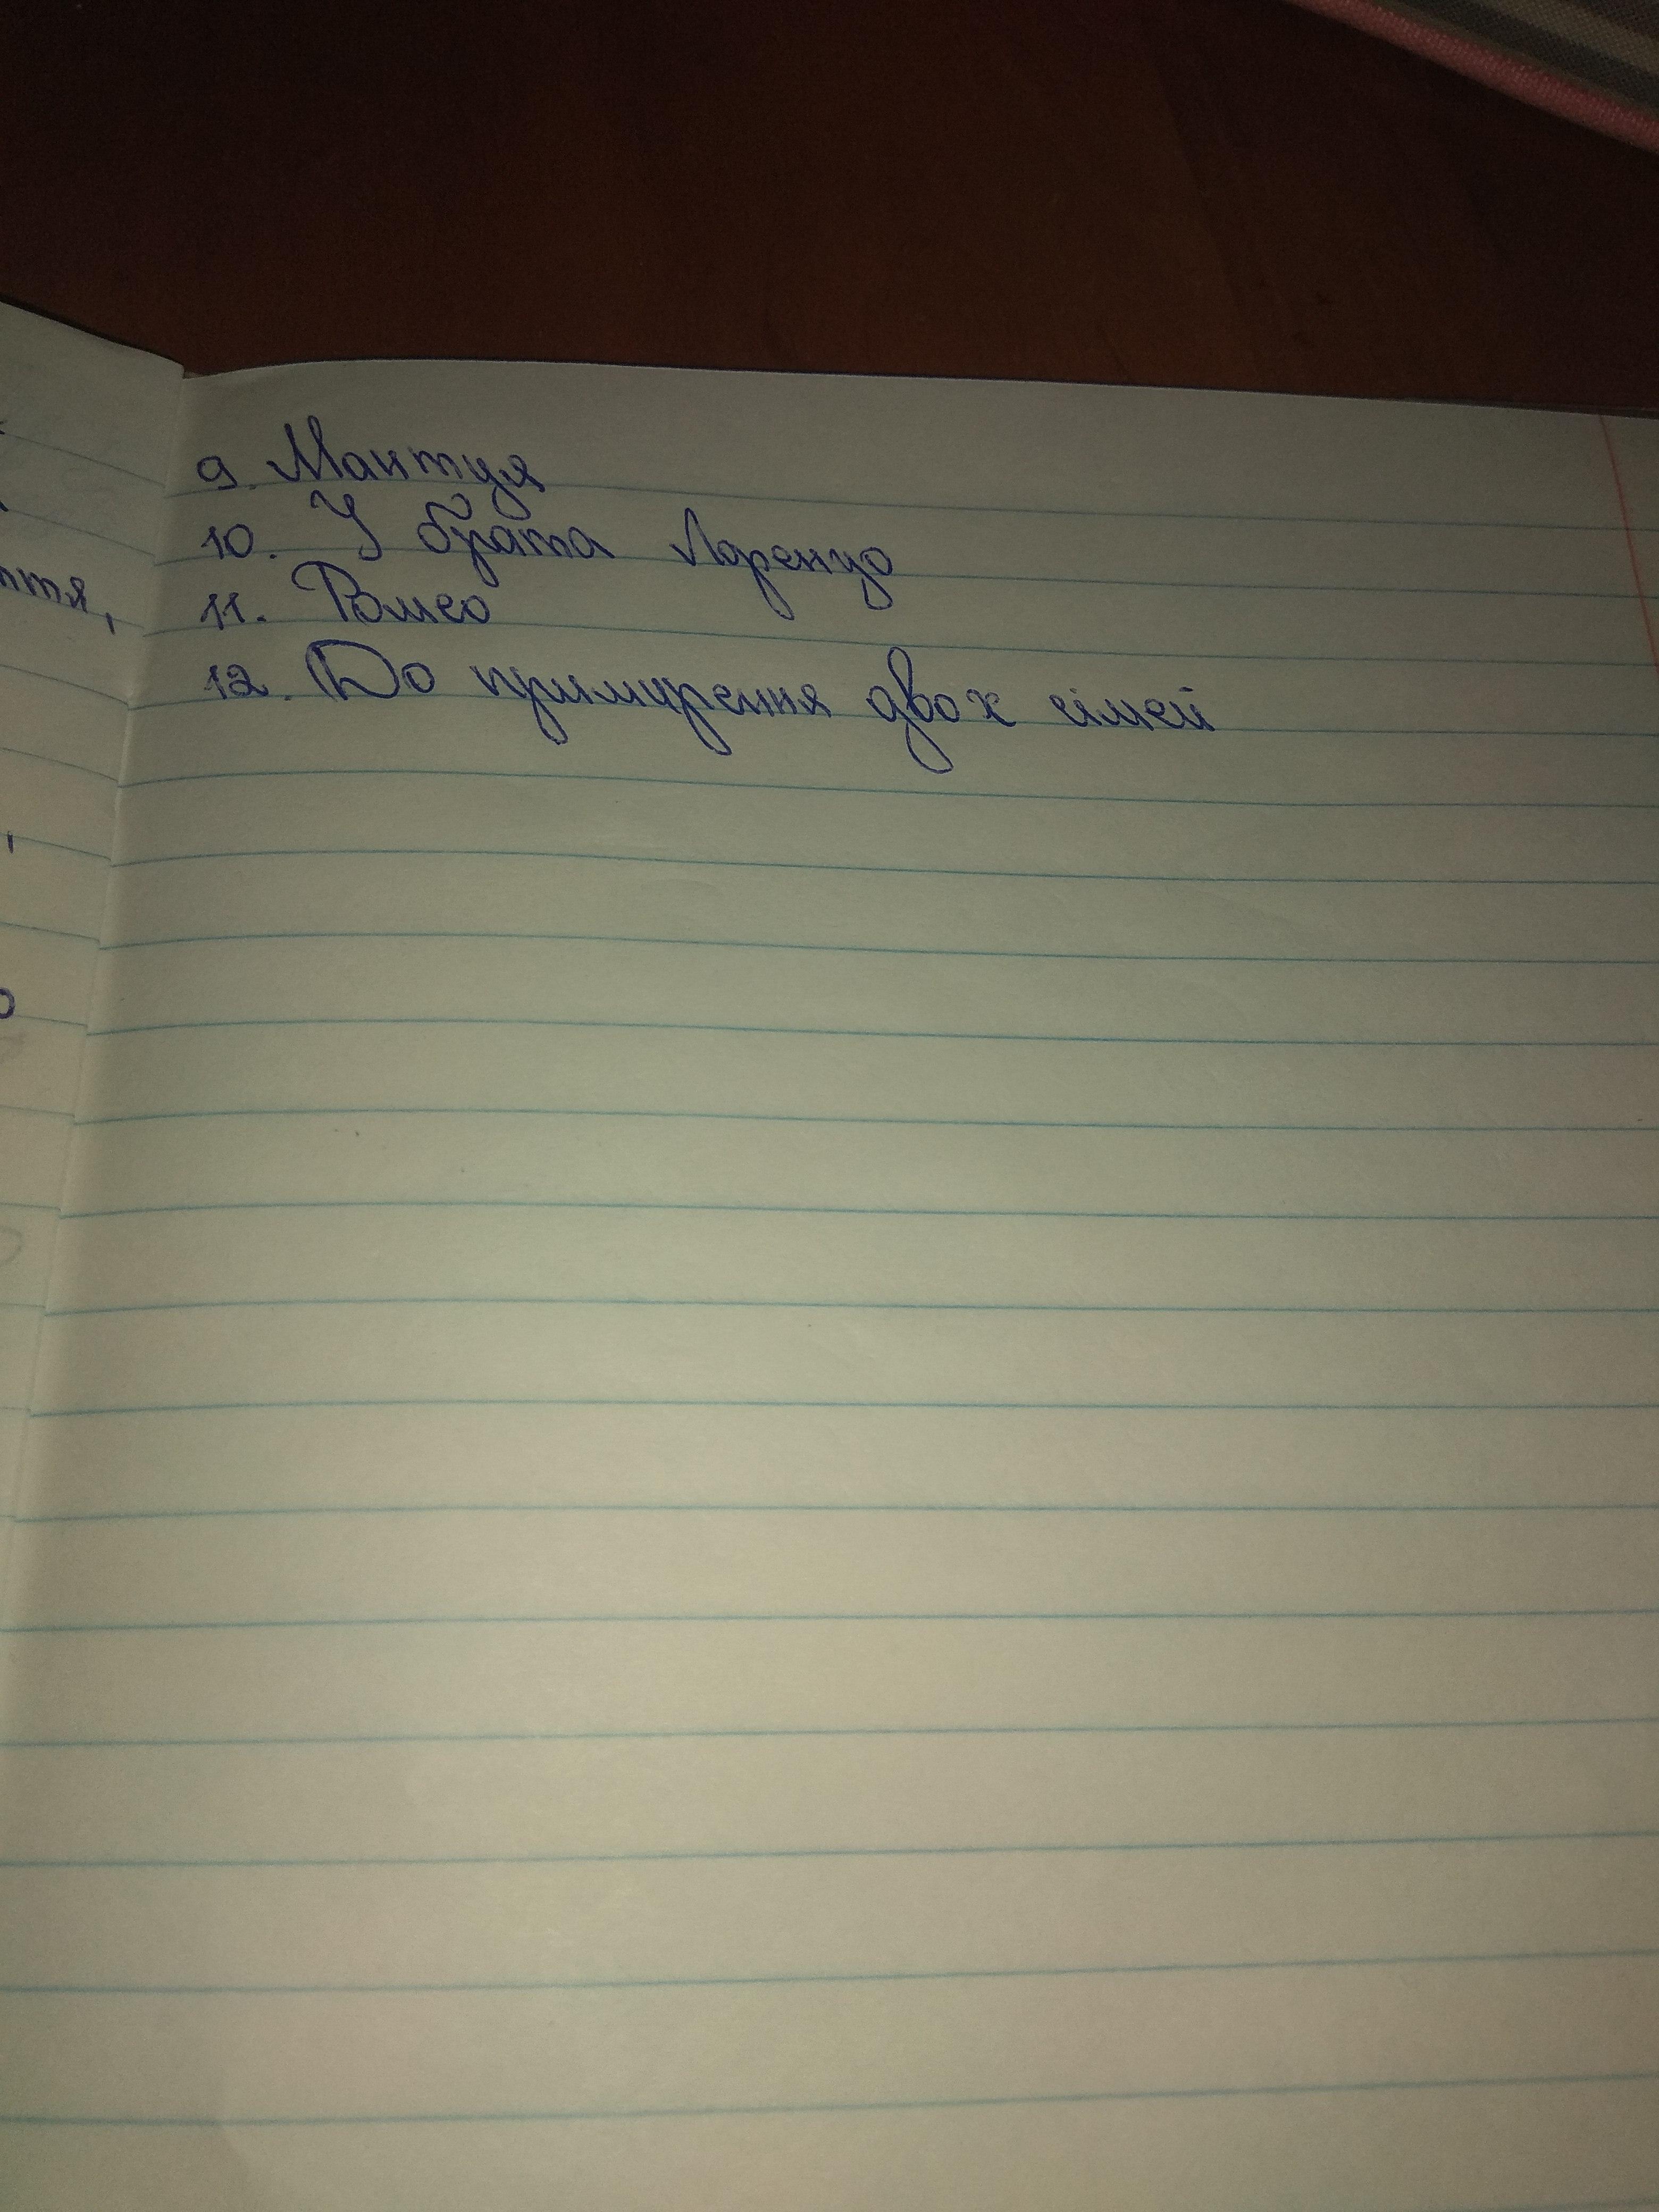 9. Мантуя
10. У брата Лоренцо
11. Ромео
12. До примирення двох сімей
ття,